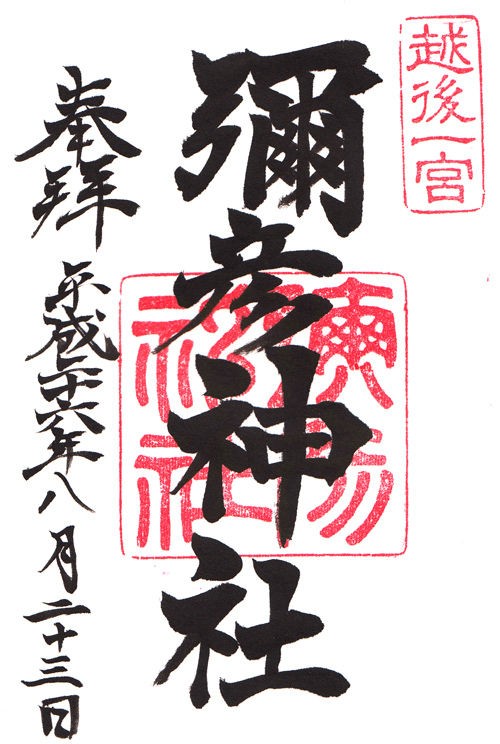 越後一宮
彌彦神社
奉拝
平成二十六年八月二十三日